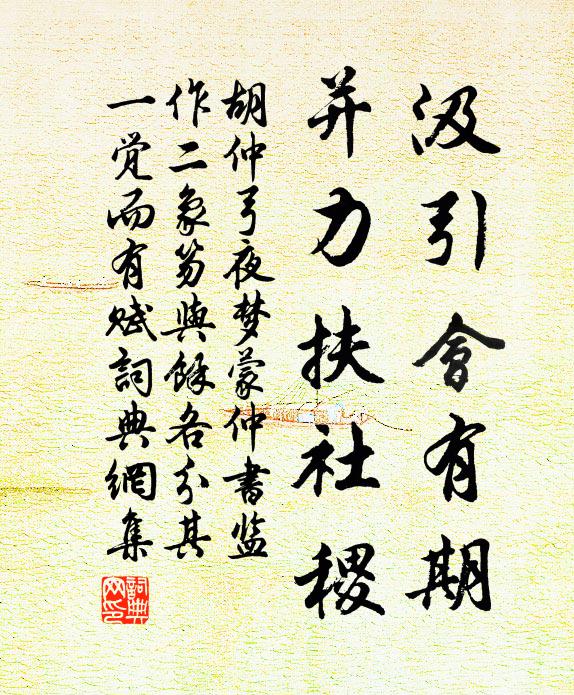 汲引會有期
并力扶社稷
胡仲弓夜梦蒙仲書监
作二象笏與餘各分其
一覚而有赋詞典網集
詞典网印